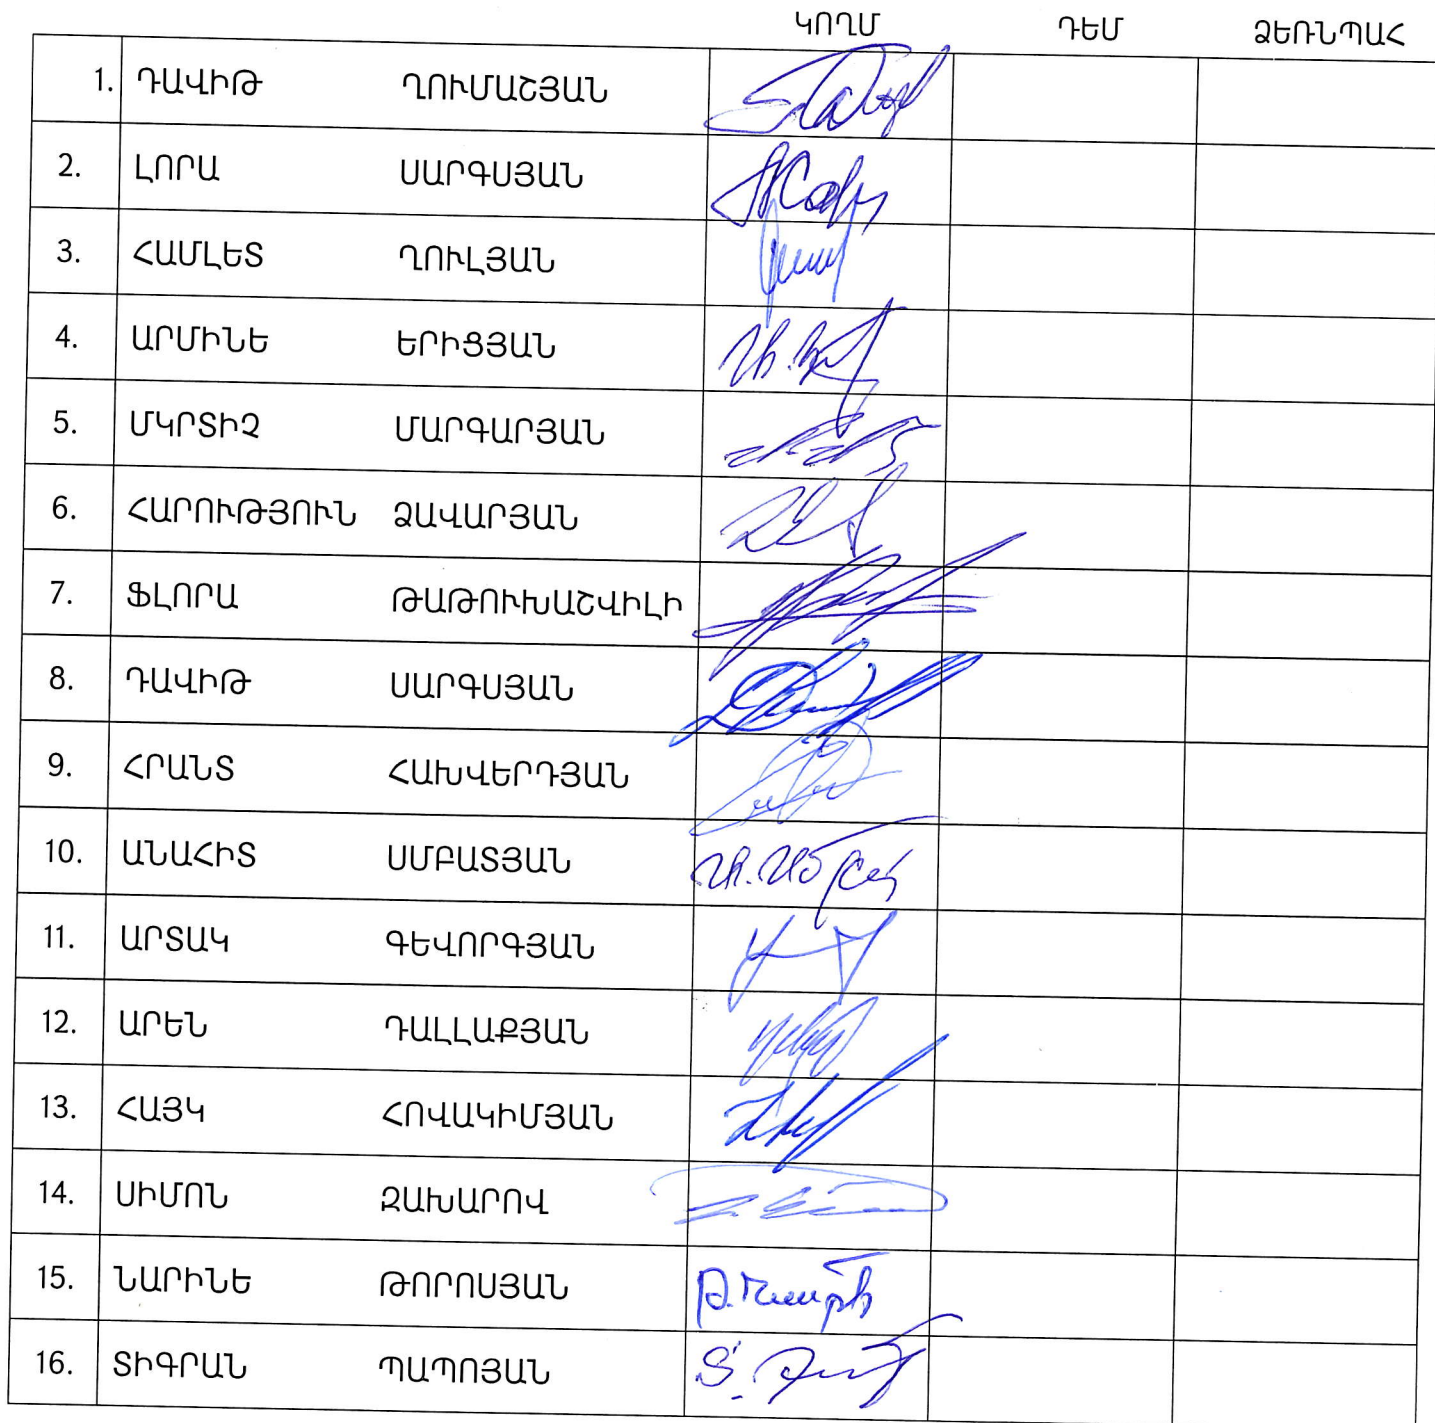 ԿՈՂՄ ԴԵՄ ՁԵՌՆՊԱՀ
1. ԴԱՎԻԹ ՂՈՒՄԱՇՅԱՆ
2. ԼՈՐԱ ՍԱՐԳՍՅԱՆ
3. ՀԱՄԼԵՏ ՂՈՒԼՅԱՆ
4. ԱՐՄԻՆԵ ԵՐԻՑՅԱՆ
5. ՄԿՐՏԻՉ ՄԱՐԳԱՐՅԱՆ
6. ՀԱՐՈՒԹՅՈՒՆ ԶԱՎԱՐՅԱՆ
7. ՖԼՈՐԱ ԹԱԹՈՒԽԱՇՎԻԼԻ
8. ԴԱՎԻԹ ՍԱՐԳՍՅԱՆ
9. ՀՐԱՆՏ ՀԱԽՎԵՐԴՅԱՆ
10. ԱՆԱՀԻՏ ՍՄԲԱՏՅԱՆ
11. ԱՐՏԱԿ ԳԵՎՈՐԳՅԱՆ
12. ԱՐԵՆ ԴԱԼԼԱՔՅԱՆ
13. ՀԱՅԿ ՀՈՎԱԿԻՄՅԱՆ
14. ՍԻՄՈՆ ԶԱԽԱՐՈՎ
15. ՆԱՐԻՆԵ ԹՈՐՈՍՅԱՆ
16. ՏԻԳՐԱՆ ՊԱՊՈՅԱՆ